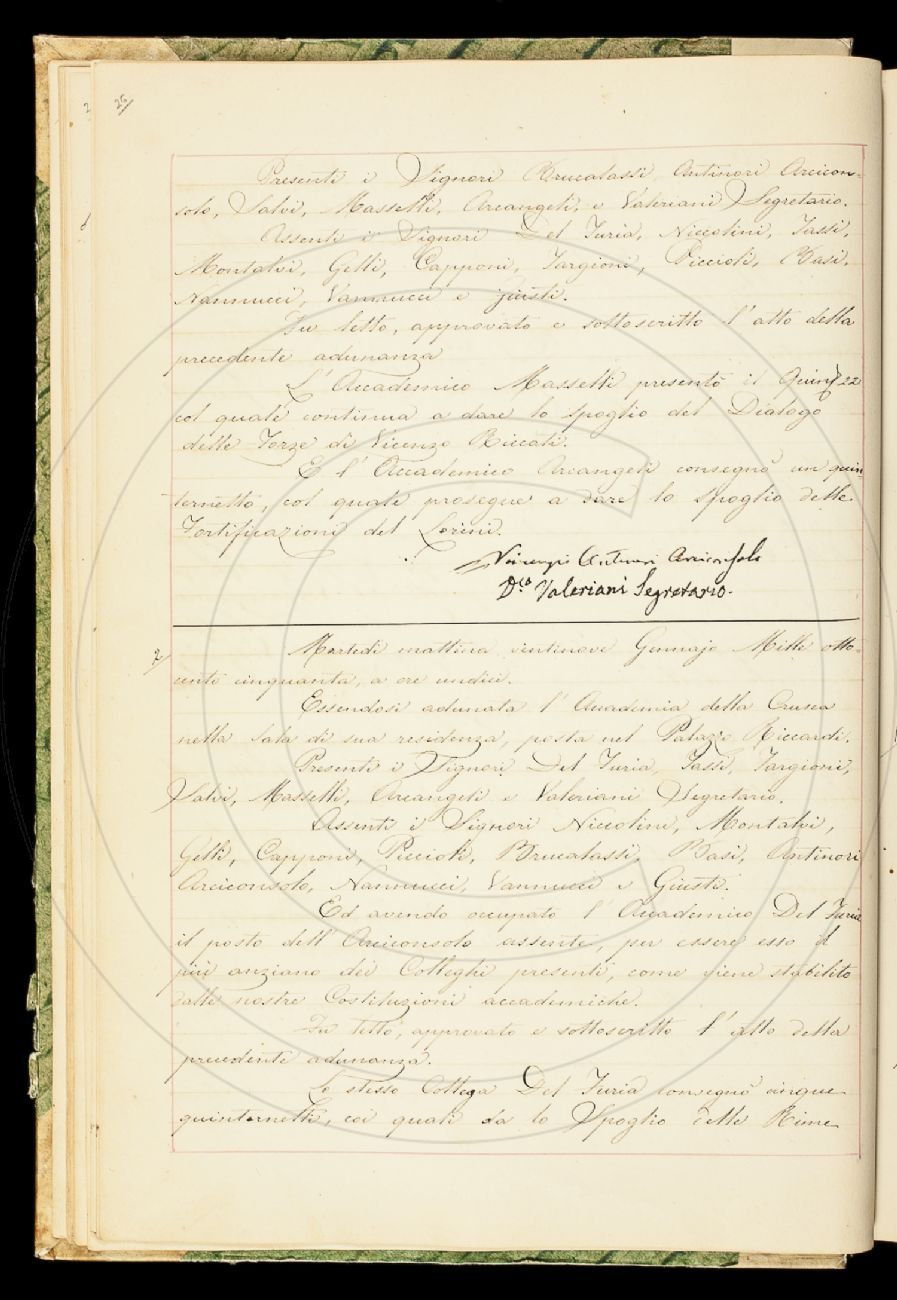 26
Presenti i Signori Brucalassi, Antinori Arcicon=
solo, Salvi, Masselli, Arcangeli, e Valeriani Segretario.
Assenti i Signori Del Furia, Niccolini, Tassi,
Montalvi, Gelli, Capponi, Targioni, Piccioli, Basi,
Nannucci, Vannucci e giusti.
Fu letto, approvato e sottoscritto l'atto della
precedente adunanza
L'Accademico Masselli presentò il Quint 22
col quale continua a dare lo spoglio del Dialogo
delle Forze di Vicenzo Riccati.
E l'Accademico Arcangeli consegnò un quin
ternetto, col quale prosegue a dare lo spoglio delle
Fortificazioni del Lorini.
Antinori Arciconsolo
D.co Valeriani Segretario.
2
Martedì mattina ventinove Gennajo Mille otto=
cento cinquanta, a ore undici.
Essendosi adunata l'Accademia della Crusca
nella Sala di sua residenza, posta nel Palazzo Riccardi.
Presenti i Signori Del Furia, Tassi, Targioni,
Salvi, Masselli, Arcangeli e Valeriani Segretario.
Assenti i Signori Niccolini, Montalvi,
Gelli, Capponi, Piccioli, Brucalassi, Basi, Antinori
Arciconsolo, Nannucci, Vannucci e Giusti.
Ed avendo occupato l'Accademico Del Furia
il posto dell'Arciconsolo assente, per essere esso il
più anziano dei Colleghi presenti, come viene stabilito
dalle nostre Costituzioni accademiche.
Fu letto, approvato e sottoscritto l'atto della
precedente adunanza.
Lo stesso Collega Del Furia consegnò cinque
quinternetti, coi quali da lo Spoglio delle Rime